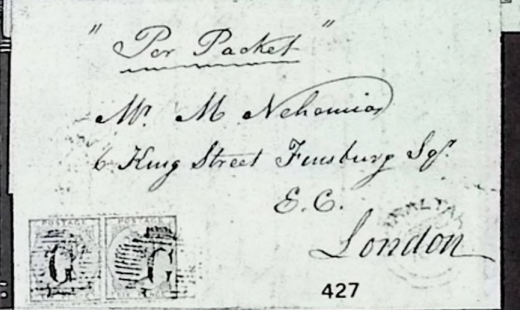 " Per Packet "
Mr. M Nehemias
6 King Street Finsburg Sqr.
E. C.
London
POSTAGE POSTAGE
G G
427